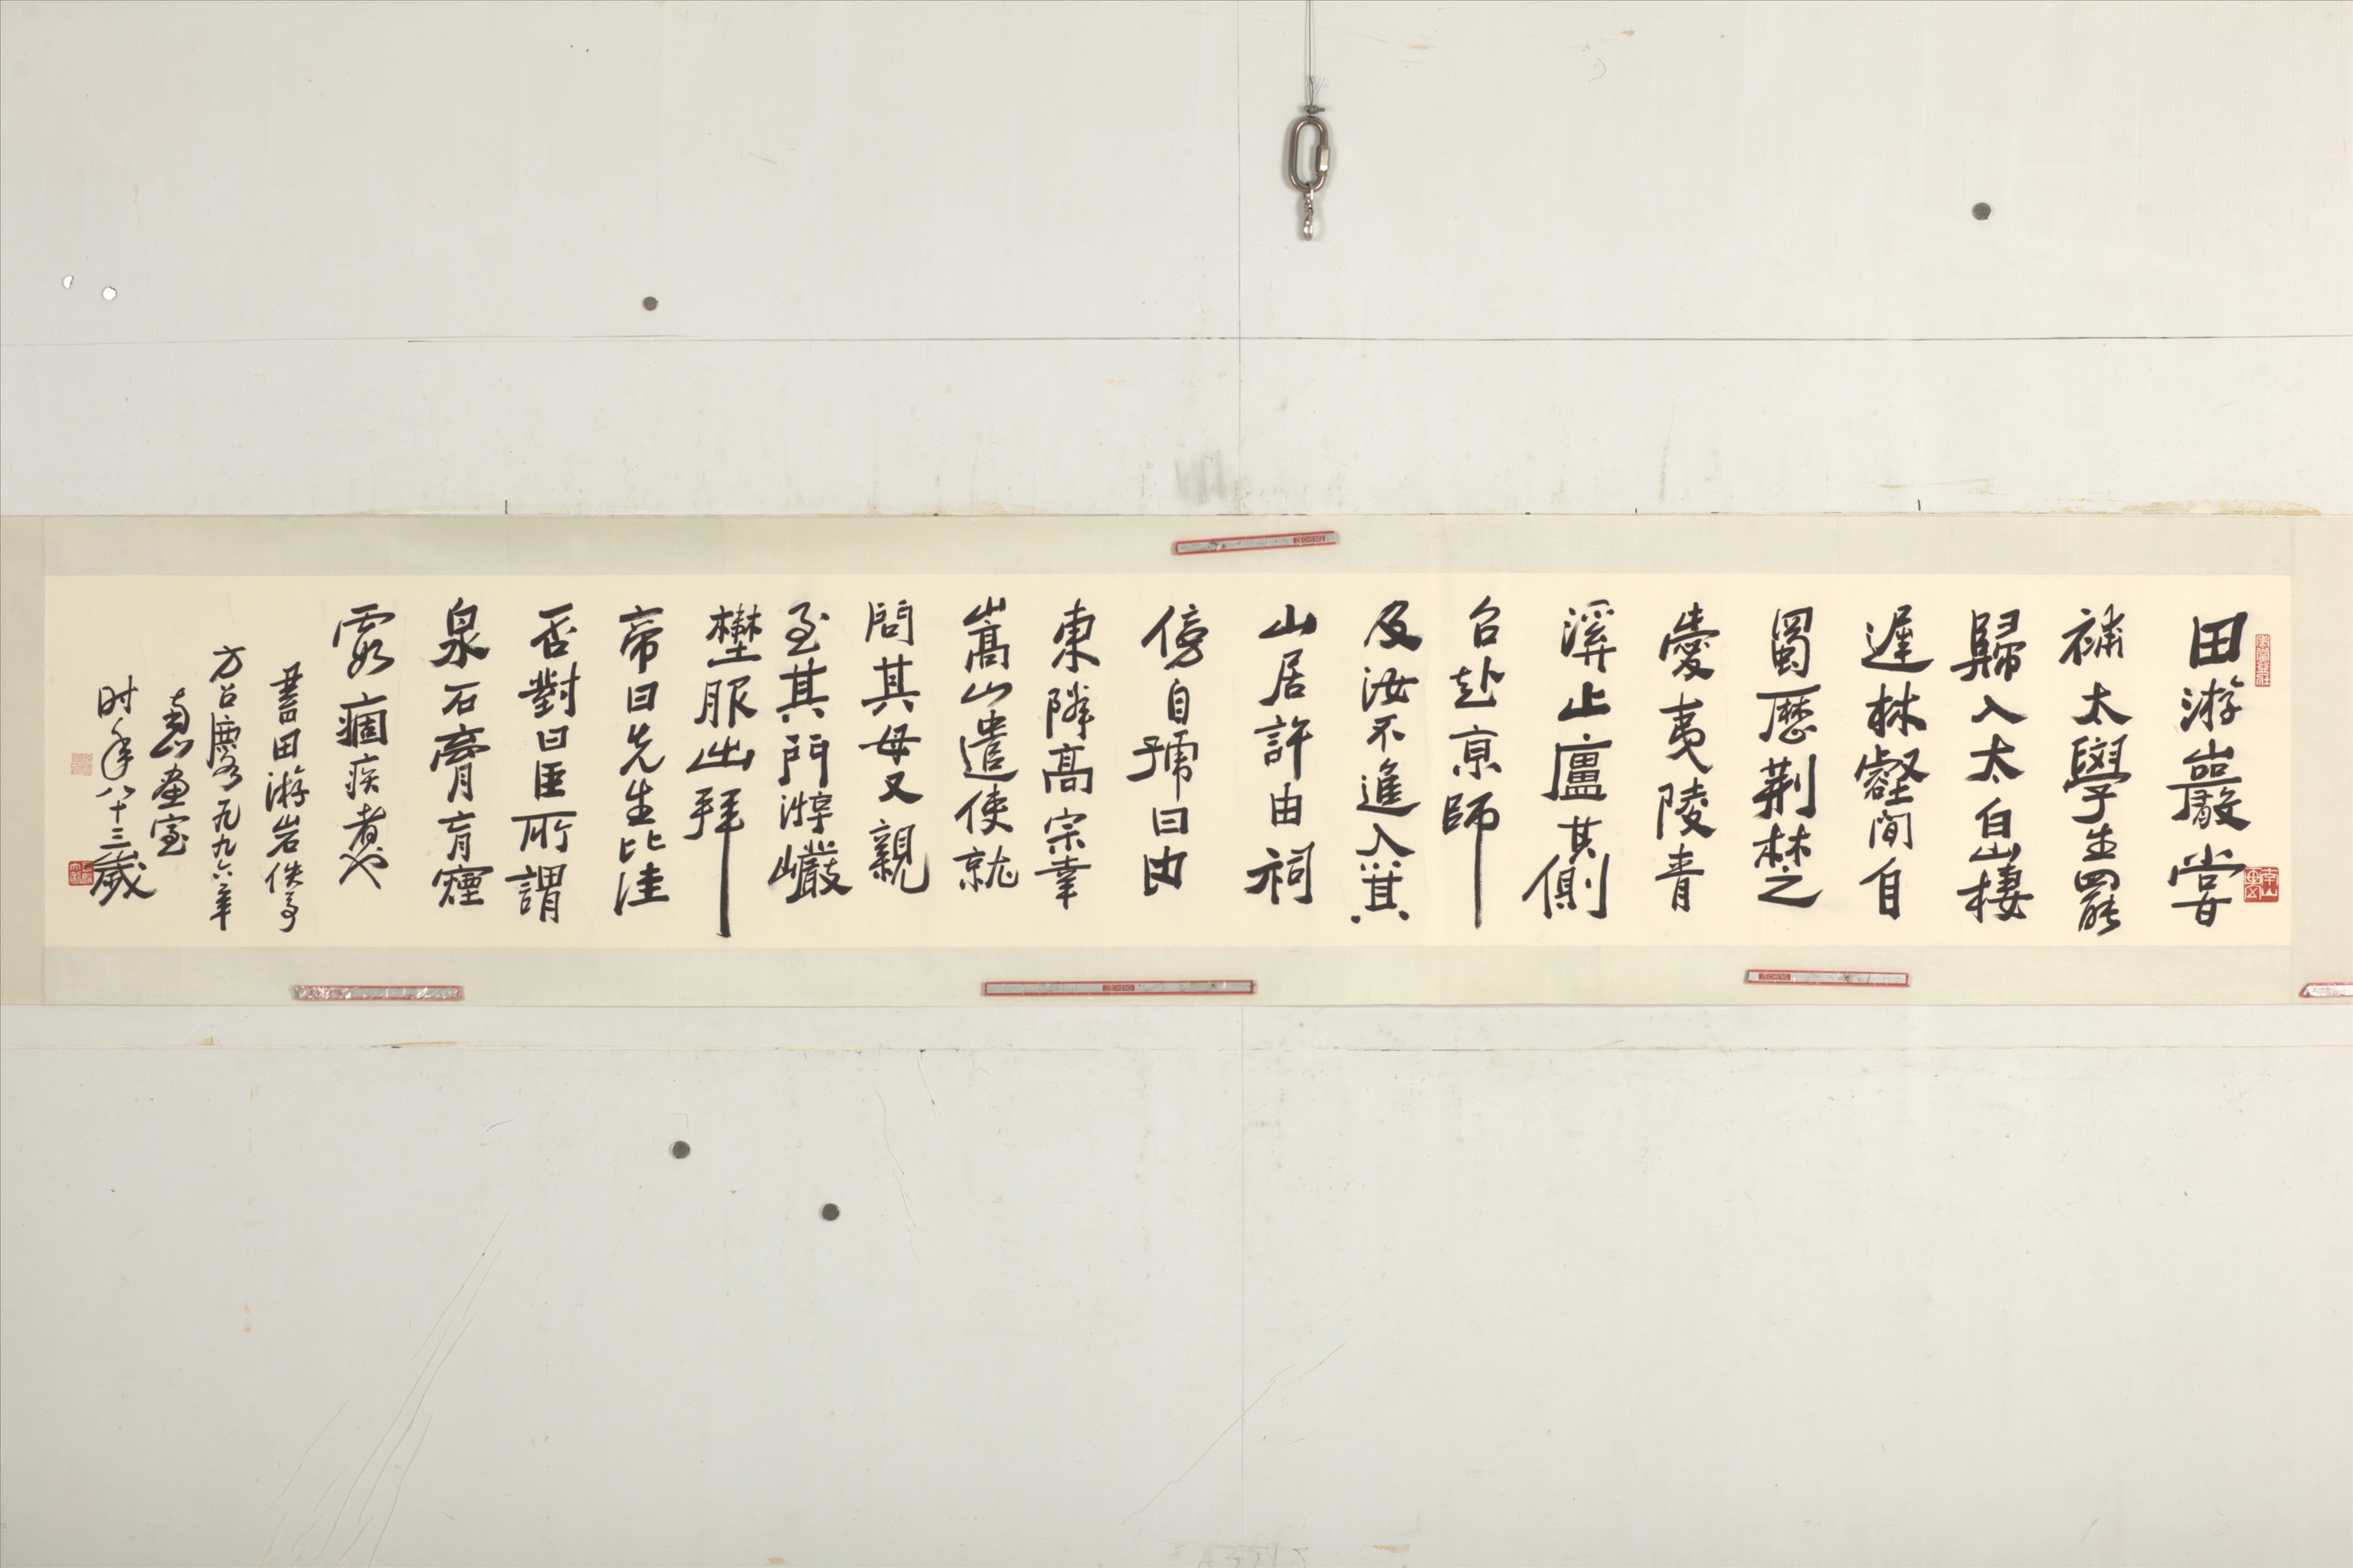 田游巖嘗
補太學生罷
歸入太白山棲
遲林壑間自
蜀歷荆楚之
愛夷陵青
溪止廬其側
召赴京師
及汝不進入箕
山居許由祠
傍自號曰由
東隣高宗幸
嵩山遣使就
問其母又親
至其門游巖
野服出拜
帝曰先生比佳
否對曰臣所謂
泉石膏肓煙
霞痼疾者也
書田游岩佚事
方召麐一九九六年
画室
时年八十三歲
ZECHENG
ZECHENG
ZECHENG